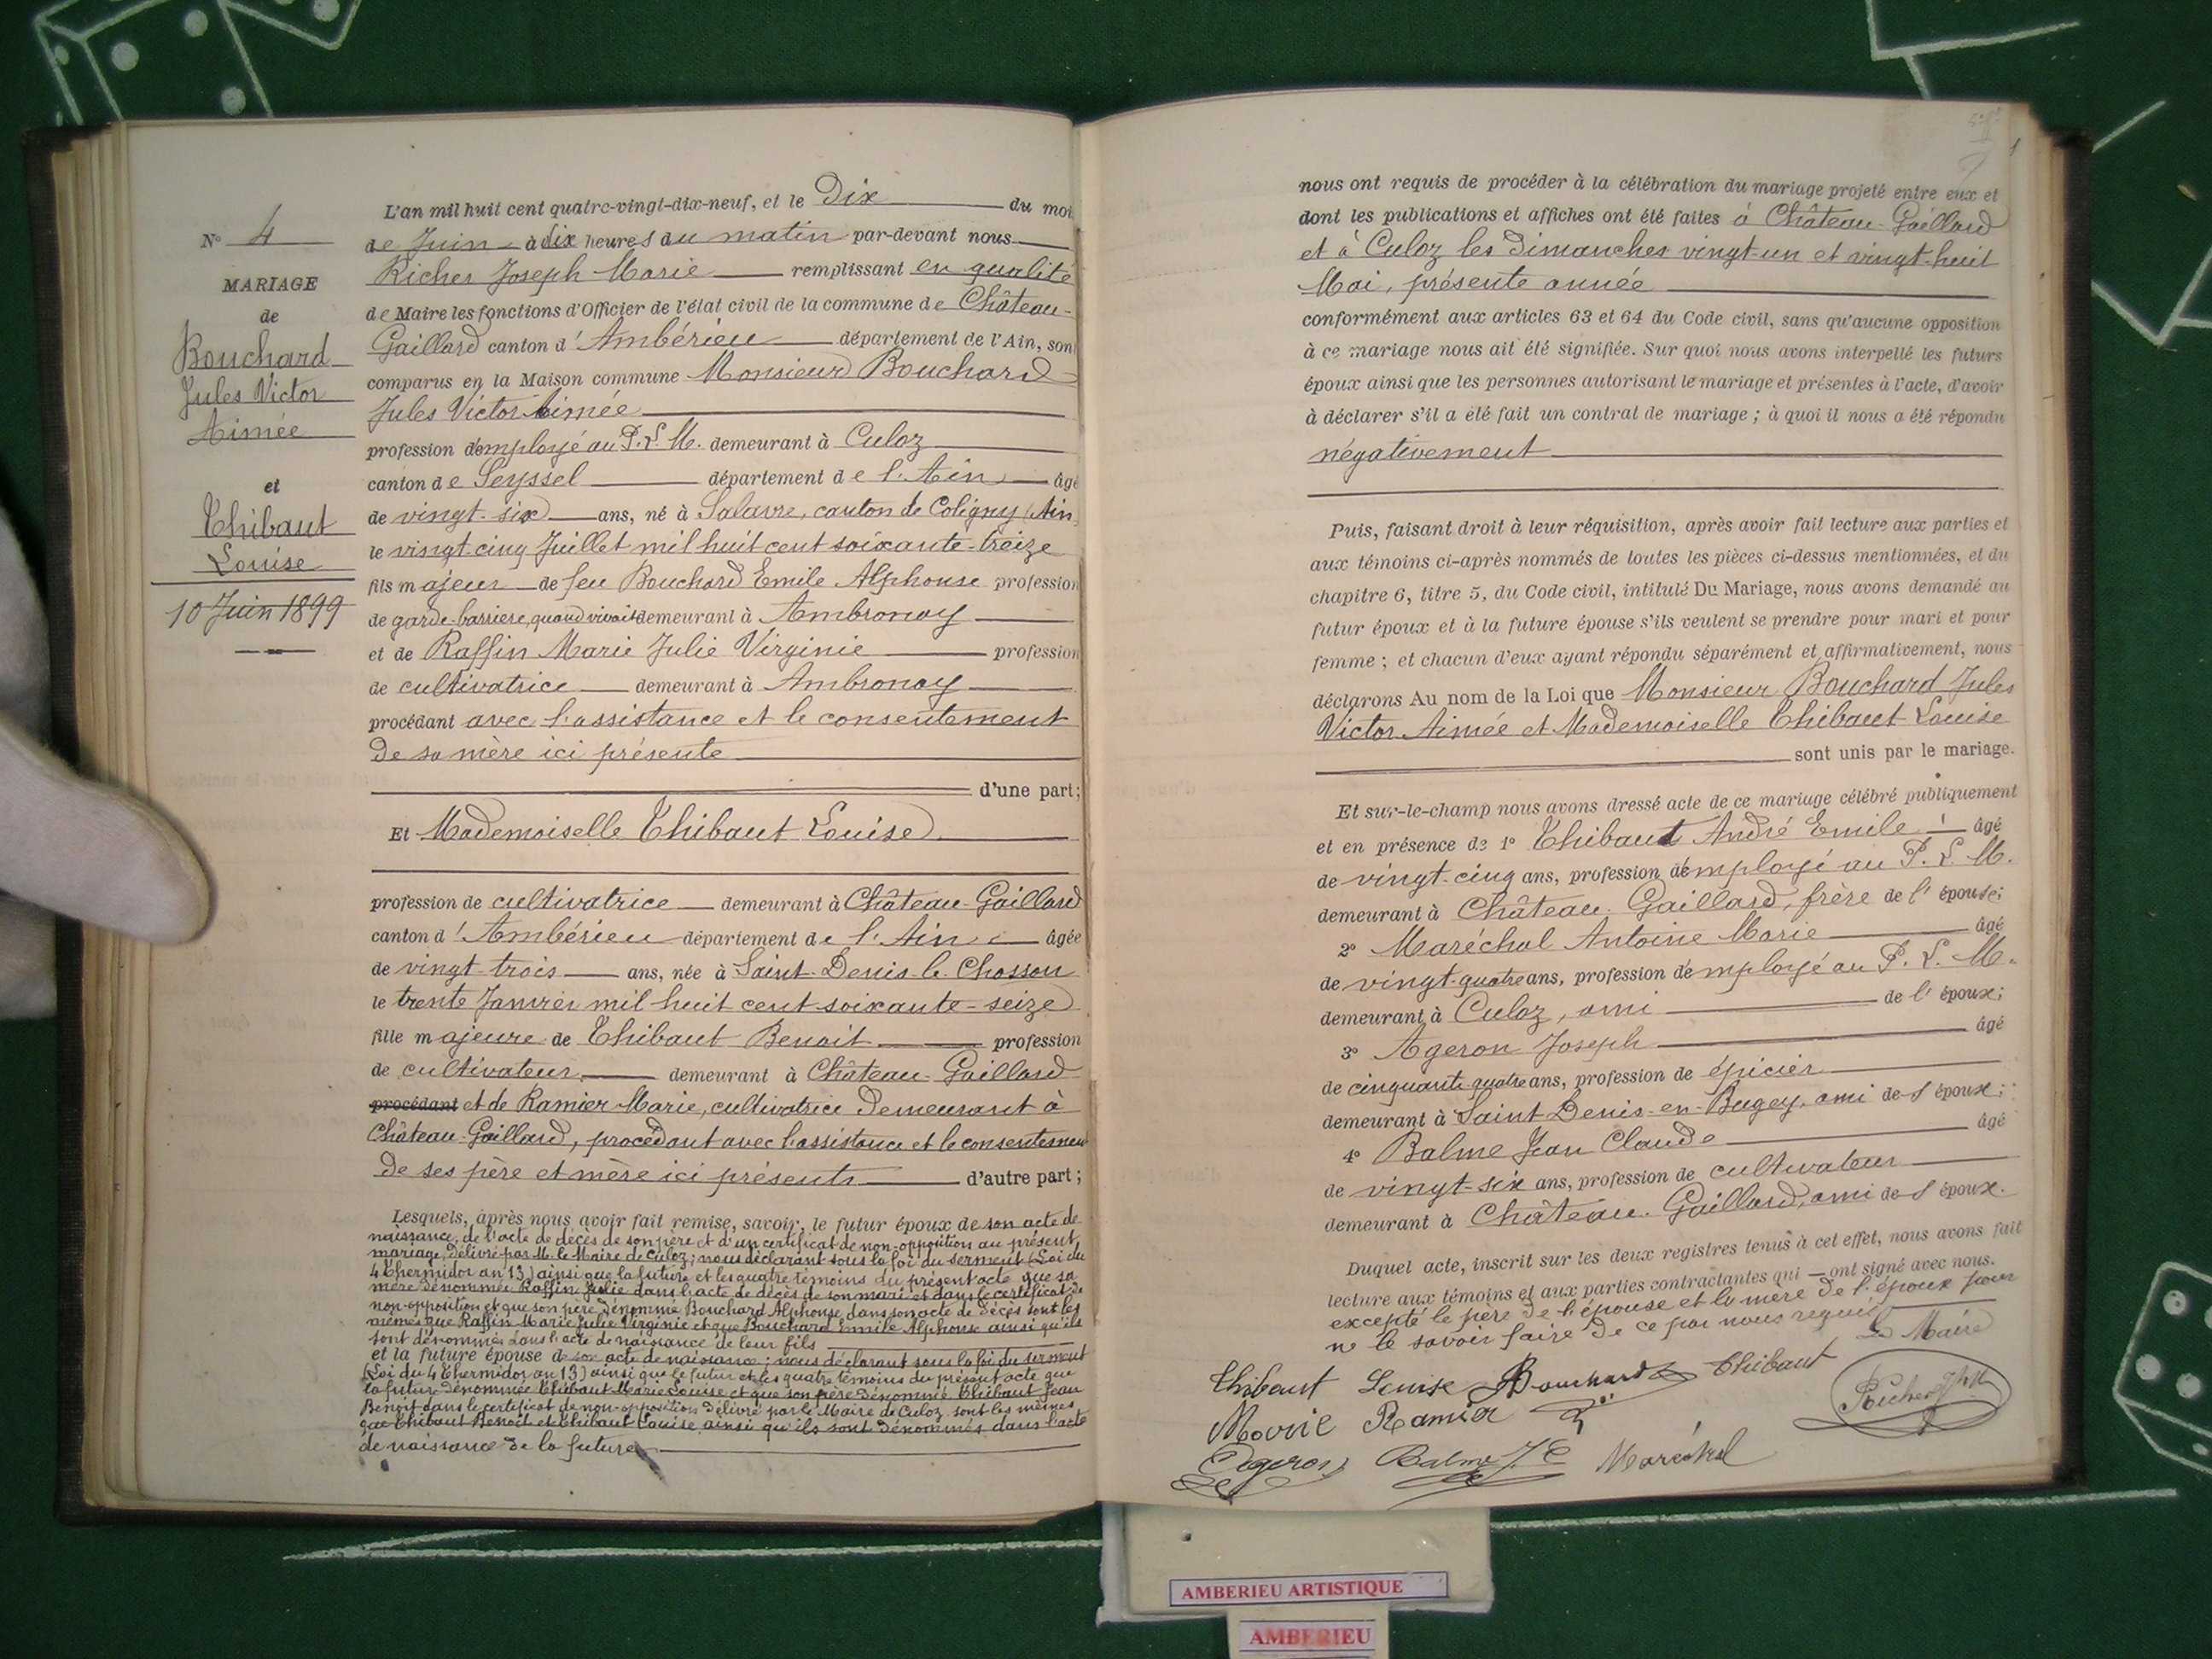 N° 4
MARIAGE
de
Bouchard
Jules Victor
Aimée
et
Thibaut
Louise
10 Juin 1899
L'an mil huit cent quatre-vingt-dix-neuf, et le Dix du moi
de Juin à dix heures du matin par-devant nous
Richer Joseph Marie remplissant en qualité
de Maire les fonctions d'Officier de l'état civil de la commune de Château-
Gaillard canton d'Ambérieu département de l'Ain, son
comparus en la Maison commune Monsieur Bouchard
Jules Victor Aimée
profession d'employé au P. L. M. demeurant à Culoz
canton de Seyssel département de l'Ain âgé
de vingt-six ans, né à Salavre, canton de Coligny (Ain
le vingt-cinq Juillet mil huit cent soixante-treize
fils majeur de feu Bouchard Emile Alphonse profession
de garde-barrière, quand vivait demeurant à Ambronay
et de Raffin Marie Julie Virginie profession
de cultivatrice demeurant à Ambronay
procédant avec l'assistance et le consentement
de sa mère ici présente
d'une part;
Et Mademoiselle Thibaut Louise
profession de cultivatrice demeurant à Château-Gaillard
canton d'Ambérieu département de l'Ain âgée
de vingt-trois ans, née à Saint-Denis-le-Chosson
le trente Janvier mil huit cent soixante-seize
fille majeure de Thibaut Benoit profession
de cultivateur demeurant à Château-Gaillard
procédant et de Ramier Marie, cultivatrice demeurant à
Château-Gaillard, procédant avec l'assistance et le consentemen
de ses père et mère ici présents d'autre part;
Lesquels, après nous avoir fait remise, savoir, le futur époux de son acte de
naissance, de l'acte de décès de son père et d'un certificat de non-opposition au présent
mariage, délivré par M. le Maire de Culoz; nous déclarant sous la foi du serment (Loi du
4 Thermidor an 13) ainsi que la future et les quatre témoins du présent acte que sa
mère dénommée Raffin Julie dans l'acte de décès de son mari et dans le certificat de
non-opposition et que son père dénommé Bouchard Alphonse dans son acte de décès sont les
mêmes que Raffin Marie Julie Virginie et que Bouchard Emile Alphonse ainsi qu'ils
sont dénommés dans l'acte de naissance de leur fils
et la future épouse de son acte de naissance; nous déclarant sous la foi du serment
(Loi du 4 Thermidor an 13) ainsi que le futur et les quatre témoins du présent acte que
la future dénommée Thibaut Marie Louise et que son père dénommé Thibaut Jean
Benoit dans le certificat de non-opposition délivré par le Maire de Culoz sont les mêmes
que Thibaut Benoit et Thibaut Louise ainsi qu'ils sont dénommés dans l'acte
de naissance de la future
nous ont requis de procéder à la célébration du mariage projeté entre eux et
dont les publications et affiches ont été faites à Château-Gaillard
et à Culoz les Dimanches vingt-un et vingt-huit
Mai, présente année
conformément aux articles 63 et 64 du Code civil, sans qu'aucune opposition
à ce mariage nous ait été signifiée. Sur quoi nous avons interpellé les futurs
époux ainsi que les personnes autorisant le mariage et présentes à l'acte, d'avoir
à déclarer s'il a été fait un contrat de mariage; à quoi il nous a été répondu
négativement
Puis, faisant droit à leur réquisition, après avoir fait lecture aux parties et
aux témoins ci-après nommés de toutes les pièces ci-dessus mentionnées, et du
chapitre 6, titre 5, du Code civil, intitulé Du Mariage, nous avons demandé au
futur époux et à la future épouse s'ils veulent se prendre pour mari et pour
femme; et chacun d'eux ayant répondu séparément et affirmativement, nous
déclarons Au nom de la Loi que Monsieur Bouchard Jules
Victor Aimée et Mademoiselle Thibaut Louise
sont unis par le mariage.
Et sur-le-champ nous avons dressé acte de ce mariage célébré publiquement
et en présence de 1° Thibaut André Emile âgé
de vingt-cinq ans, profession d'employé au P. L. M.
demeurant à Château-Gaillard, frère de l'épouse;
2° Maréchal Antoine Marie âgé
de vingt-quatre ans, profession d'employé au P. L. M.
demeurant à Culoz, ami de l'époux;
3° Ageron Joseph âgé
de cinquante-quatre ans, profession de épicier
demeurant à Saint Denis-en-Bugey, ami de l'époux;
4° Balme Jean Claude âgé
de vingt-six ans, profession de cultivateur
demeurant à Château-Gaillard, ami de l'époux.
Duquel acte, inscrit sur les deux registres tenus à cet effet, nous avons fait
lecture aux témoins et aux parties contractantes qui ont signé avec nous.
excepté le père de l'épouse et la mère de l'époux pour
ne le savoir faire de ce par nous requis
Le Maire
Thibaut Louise Bouchard Thibaut
Marie Ramier Richer
Ageron Balme J. C Maréchal
AMBERIEU ARTISTIQUE
AMBERIEU